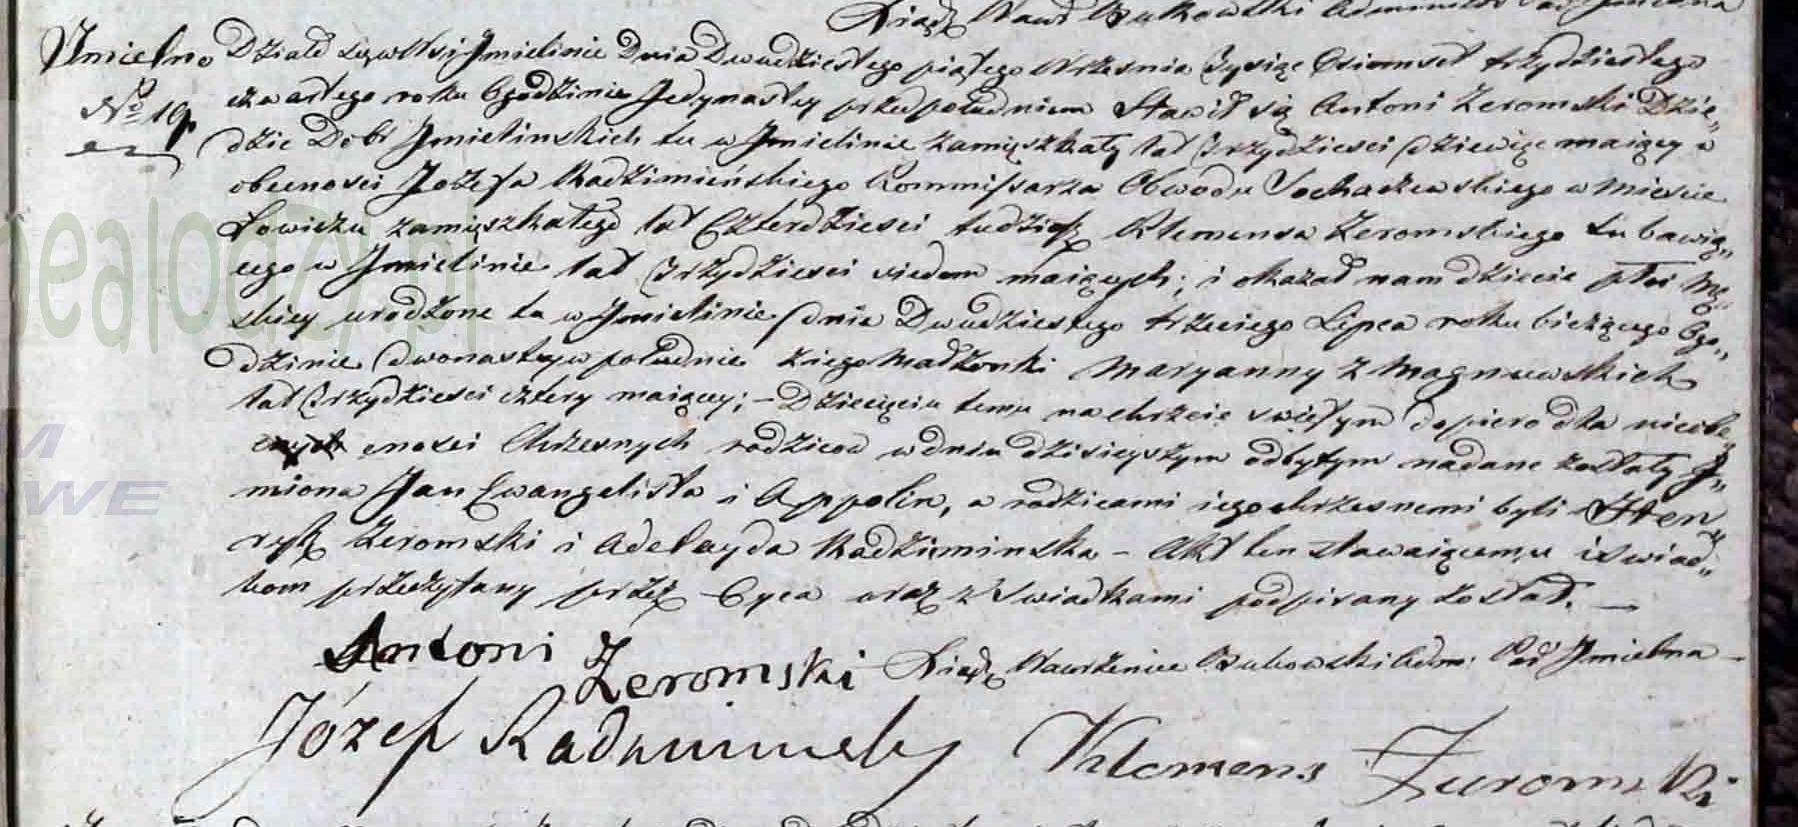 Xiądz Waw: Bukowski Administr Par Imielna
Imielno Działo się w Wsi Jmielinie Dnia Dwudziestego piątego Września Tysiąc Ośmset trzydziestego
No 19. czwartego roku O godzinie Jedynastey przed południem Stawił się Antoni Żeromski Dzie„
dzic Dobr Jmielinskich tu w Jmielinie zamięszkały lat Trzydziesci dziewięc maiący w
obecnosci Jozefa Radzimińskiego Kommissarza Obwodu Sochaczewskiego w Miescie
Łowiczu zamięszkałego lat Czterdziesci tudzież Klemensa Żeromskiego tu bawią„
cego w Jmielinie lat Trzydziesci siedem maiących; i okazał nam dziecie płci Mę„
skiey urodzone tu w Jmielinie dnia Dwudziestego trzeciego Lipca roku bieżącego O go„
dzinie dwonastey w południe z iego Małżonki Maryanny z Magnuskich
lat Trzydziesci cztery maiącey; – Dziecięciu temu na chrzcie swiętym dopiero dla nieobe„
cnosci Chrzesnych rodziców w dniu dzisieyszym odbytym nadane zostały J„
miona Jan Ewangelista i Appolin, a rodzicami iego chrzesnemi byli Hen„
ryk Żeromski i Adelayda Radzimińska – Akt ten stawaiącemu i Swiad„
kom przeczytany przez Oyca wraz z Swiadkami podpisany został. —
Antoni Żeromski Xiądz Wawrzeniec Bukowski Adm: Par Jmielna –
Józef Radzimiński Klemens Żeromski